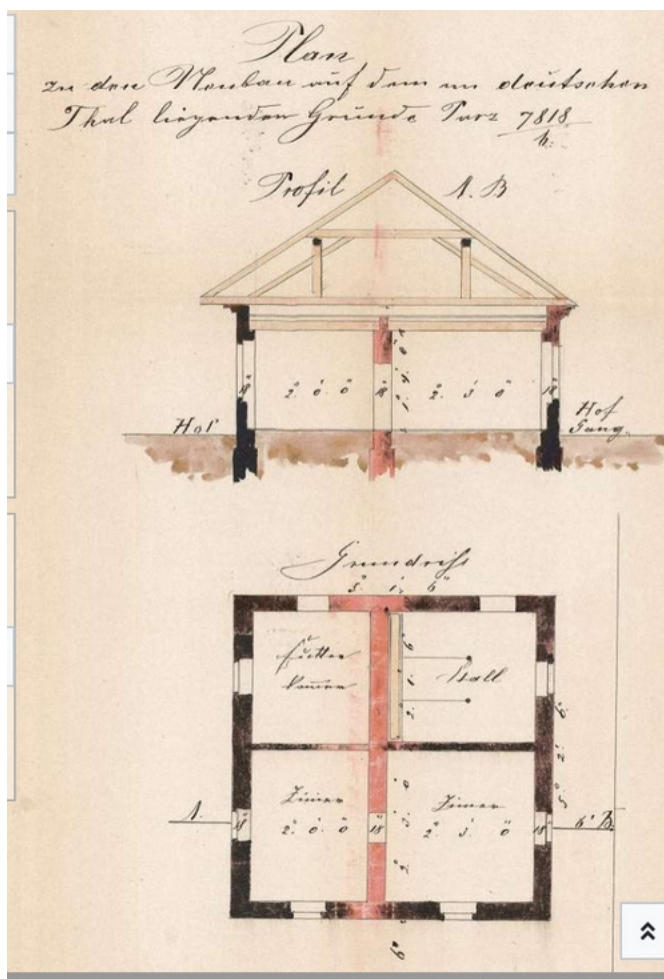 Plan
zu den Neubau auf dem im deutschen
Thal liegenden Grunde Parz 7818/b.
Profil A. B
18" 2° 0' 0" 18 2° 3' 0" 18"
Hof
Hof
Gang.
Grundriß
3° 1' 6"
Futter
Stall
2° 1' 6"
5° 2' 6"
A.
Zimer
Zimer
18" 2° 0' 0" 18" 2° 3' 0" 18" 6' B.
2° 3' 0